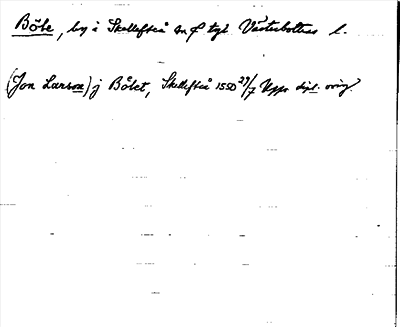 Böle, by i Skellefteå sn o tgl. Västerbottens l.
(Jon Larson) j Bölet, Skellefteå 1550 29/7 Upps. dipl. orig.